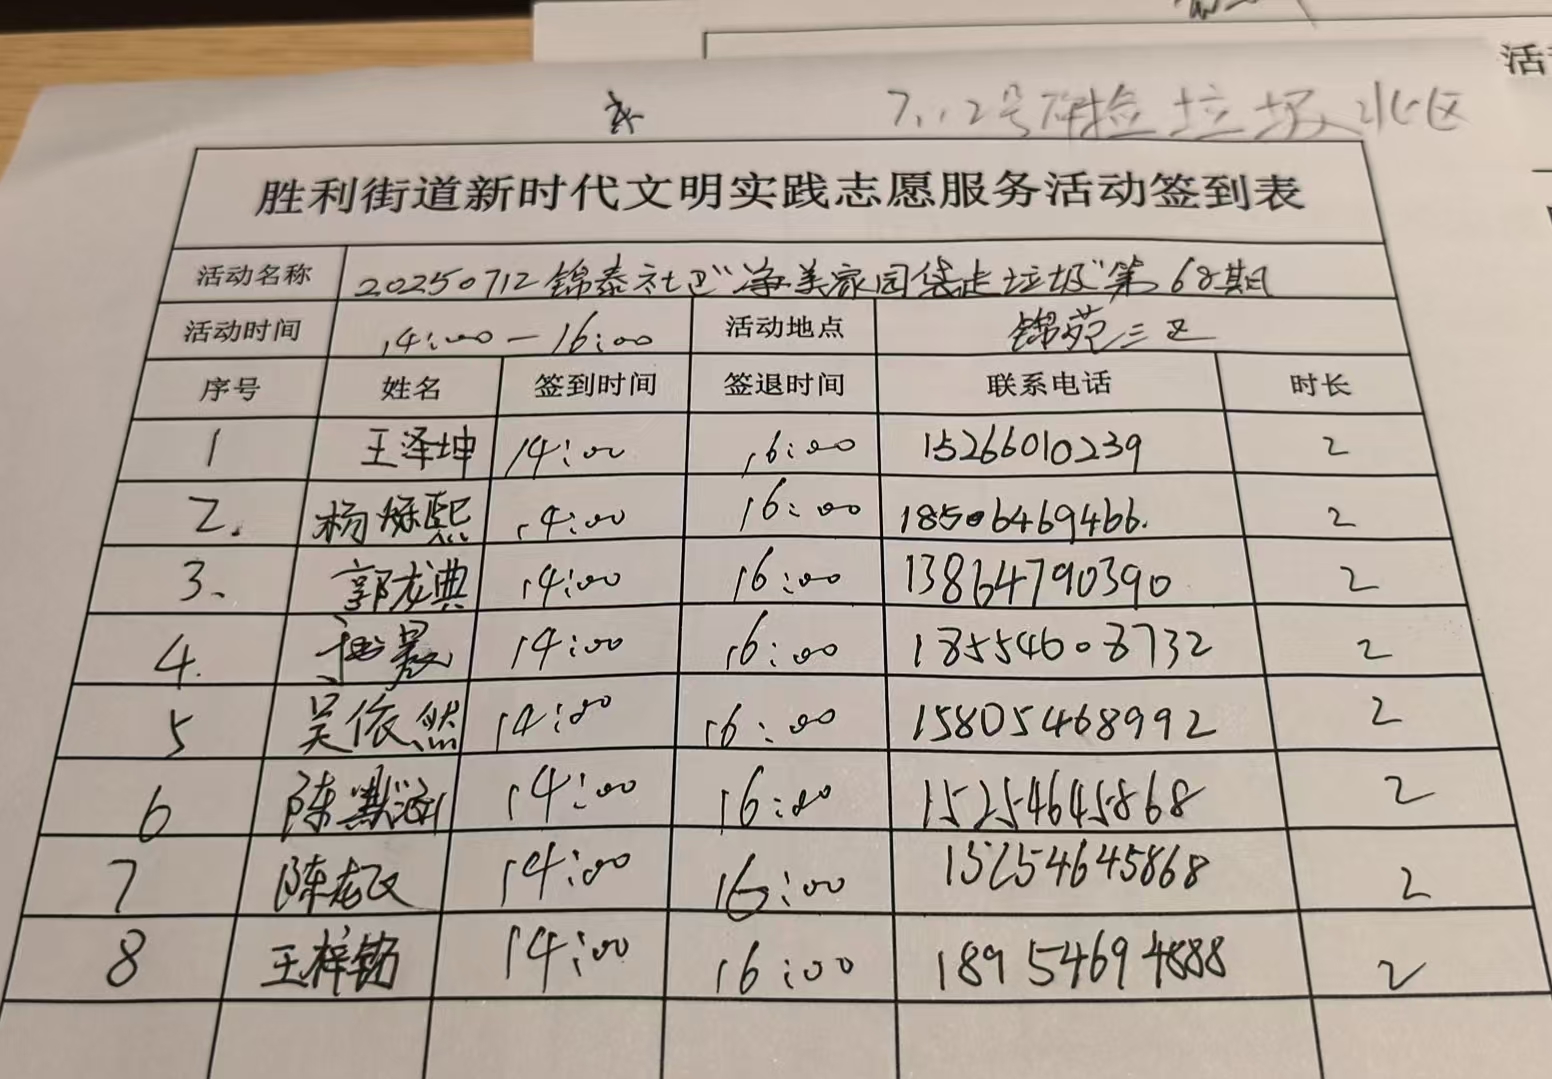 7.12号 捡垃圾北区
胜利街道新时代文明实践志愿服务活动签到表
活动名称 20250712锦泰社区"净美家园袋走垃圾"第68期
活动时间 14:00—16:00 活动地点 锦苑三区
序号 姓名 签到时间 签退时间 联系电话 时长
1 王泽坤 14:00 16:00 15266010239 2
2. 杨烁熙 14:00 16:00 18506469466. 2
3、 郭龙典 14:00 16:00 13864790390 2
4. 14:00 16:00 18554608732 2
5 吴依然 14:00 16:00 15805468992 2
6 陈默涵 14:00 16:00 15254645868 2
7 陈龙 14:00 16:00 15254645868 2
8 王梓 14:00 16:00 18954694888 2
活